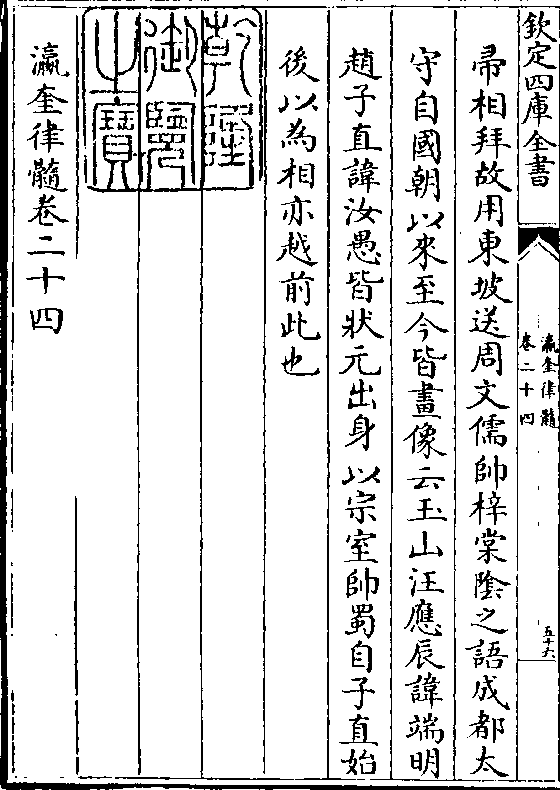 欽定四庫全書
瀛奎律髓
卷二十四
五十六
帚相拜故用東坡送周文儒帥梓棠陰之語成都太
守自國朝以來至今皆畫像云玉山汪應辰諱端明
趙子直諱汝愚皆狀元出身以宗室帥蜀自子直始
後以為相亦越前此也
瀛奎律髓卷二十四
乾隆
御覽
之寶